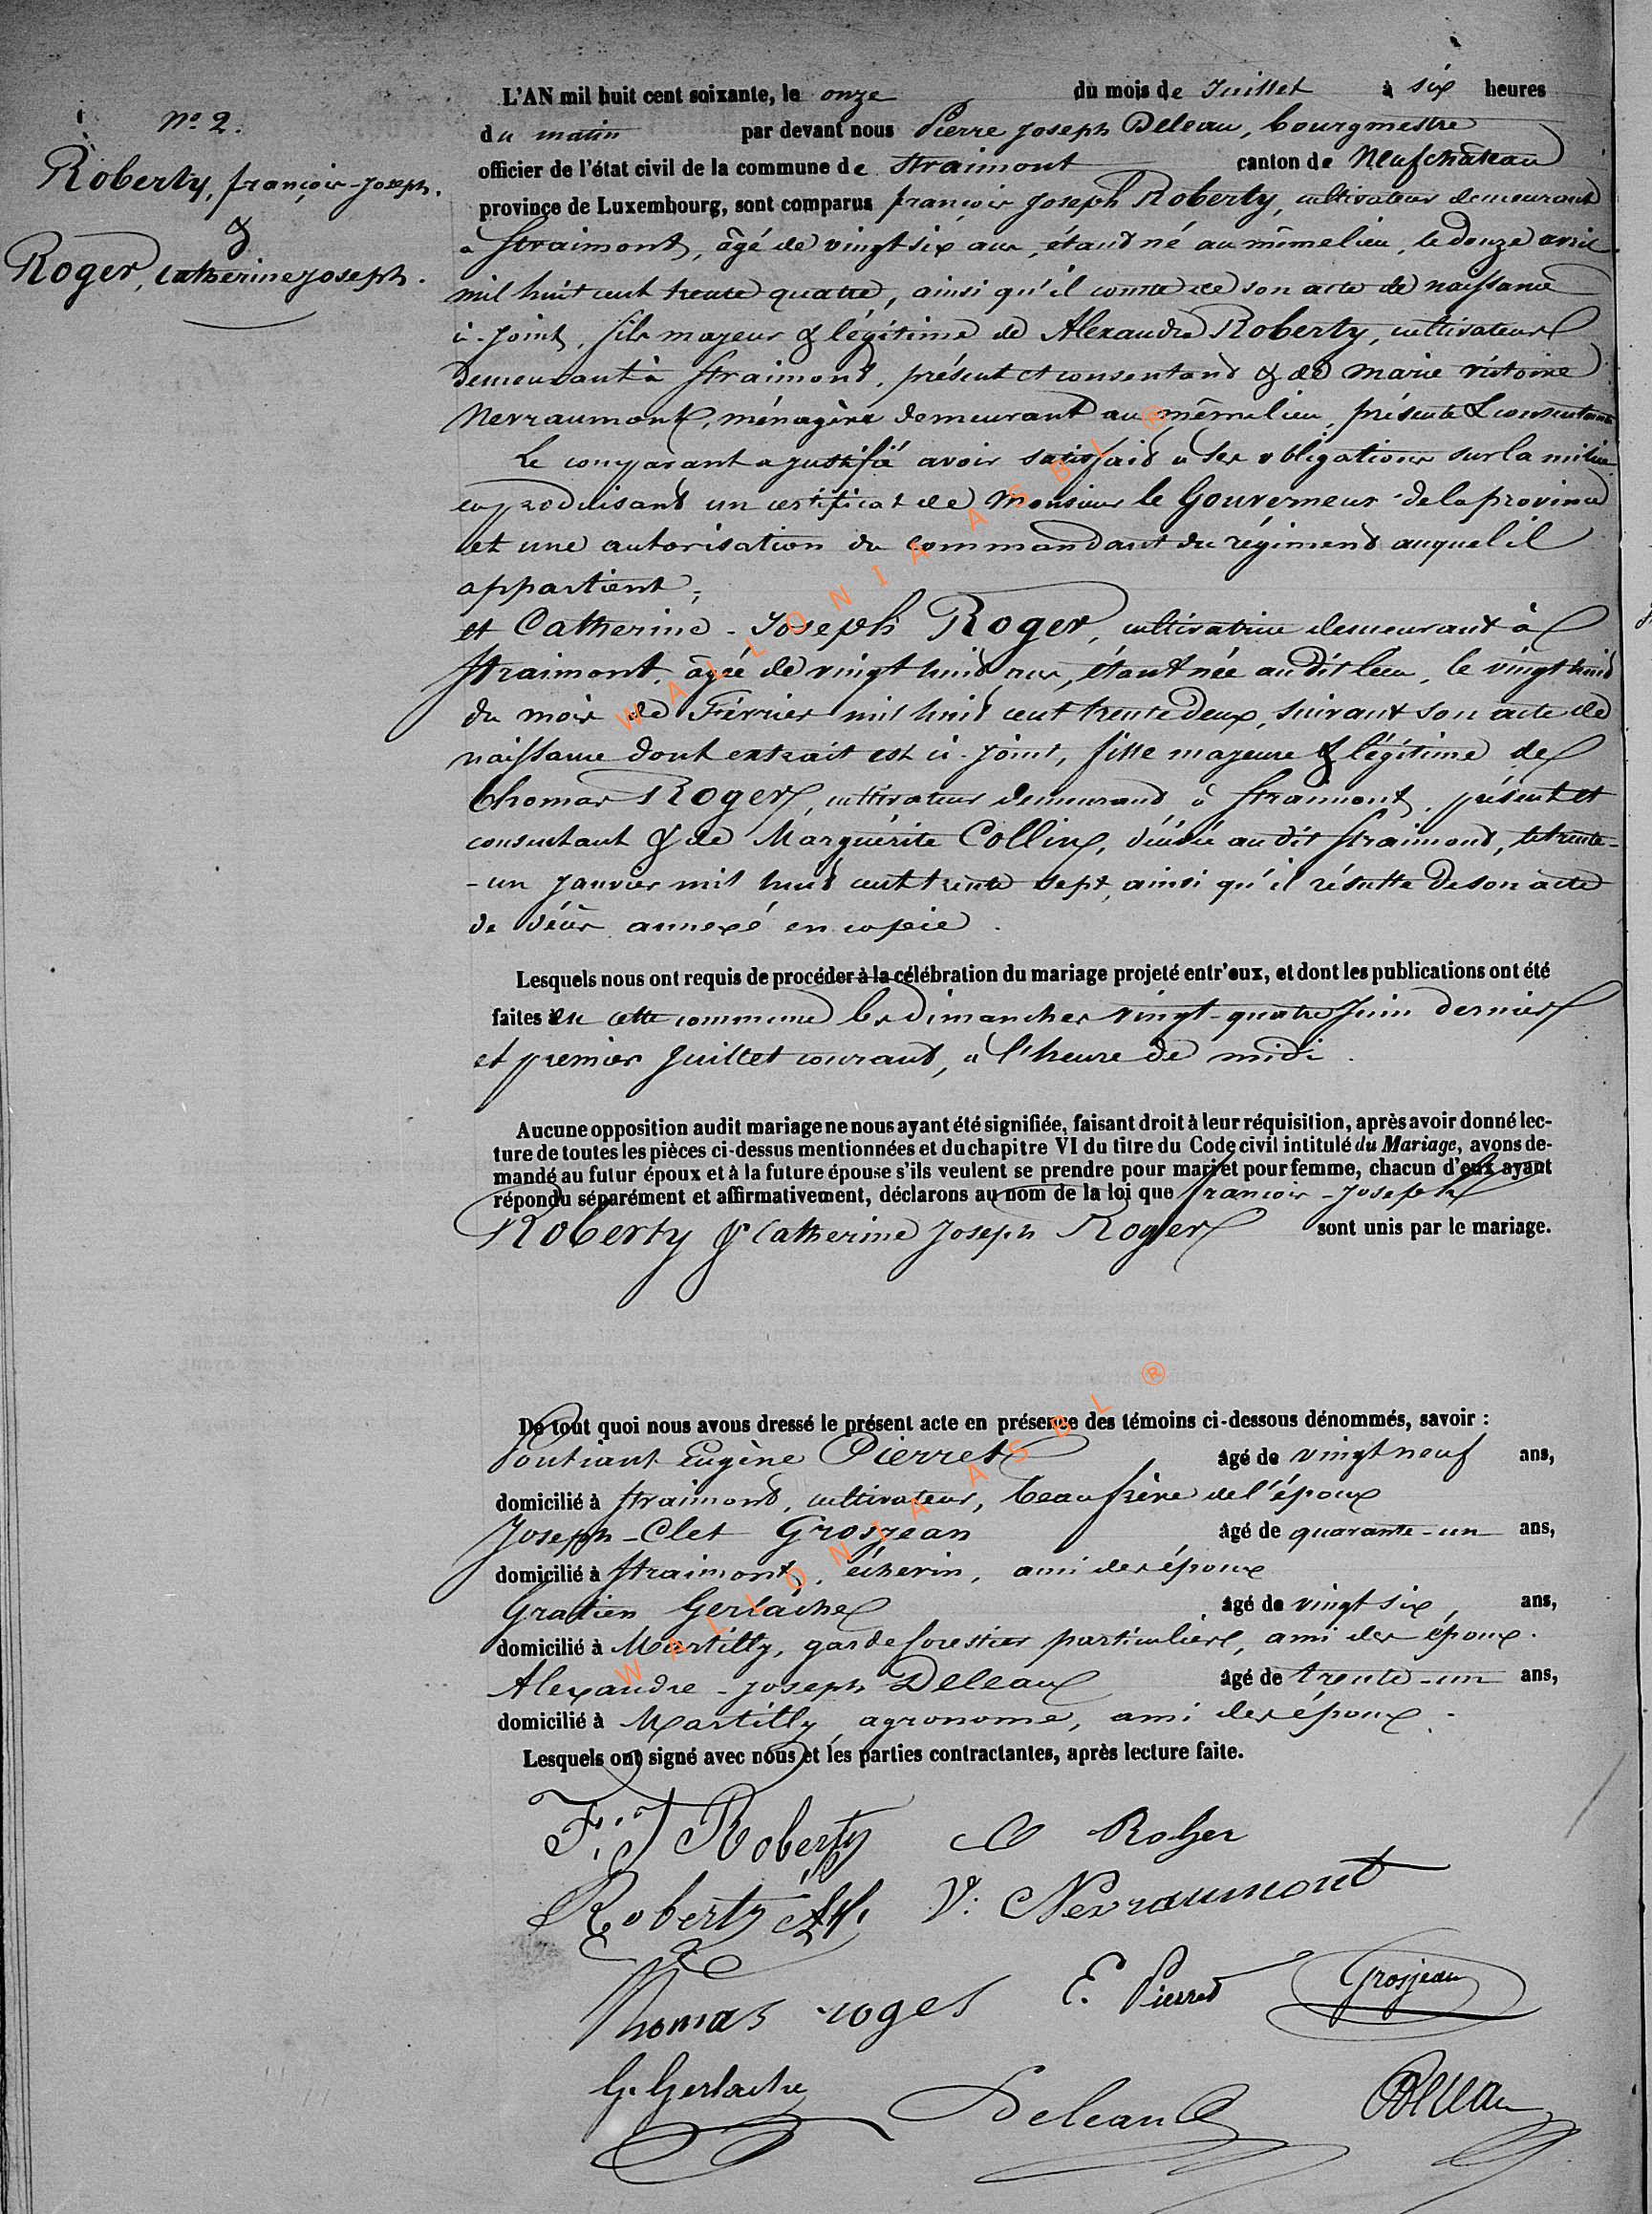 N° 2.
Roberty, françois-Joseph.
&
Roger, Catherine Joseph.
L'AN mil huit cent soixante, le onze du mois de Juillet à six heures
du matin par devant nous Pierre Joseph Deleau, bourgmestre
officier de l'état civil de la commune de Straimont canton de Neufchâteau
province de Luxembourg, sont comparus françois Joseph Roberty, cultivateur demeurant
à Straimont, âgé de vingt six ans, étant né au même lieu, le douze avril
mil huit cent trente quatre, ainsi qu'il conste de son acte de naissance
ci-joint, fils majeur & légitime de Alexandre Roberty, cultivateur
demeurant à Straimont, présent et consentant & de Marie Victoire
Nevraumont, ménagère demeurant au même lieu, présente & consentante
Le comparant a justifié avoir satisfait à ses obligations sur la milice
en produisant un certificat de Monsieur le Gouverneur de la province
et une autorisation du commandant du régiment auquel il
appartient;
et Catherine-Joseph Roger, cultivatrice demeurant à
Straimont, âgée de vingt huit ans, étant née au dit lieu, le vingt huit
du mois de Février mil huit cent trente deux, suivant son acte de
naissance dont extrait est ci-joint, fille majeure & légitime de
Thomas Roger, cultivateur demeurant à Straimont, présent et
consentant & de Marguérite Collin, décédée au dit Straimont, le trente-
-un janvier mil huit cent trente sept, ainsi qu'il résulte de son acte
de décès annexé en copie.
Lesquels nous ont requis de procéder à la célébration du mariage projeté entr'eux, et dont les publications ont été
faites en cette commune les dimanches vingt-quatre Juin dernier
et premier Juillet courant, à l'heure de midi.
Aucune opposition audit mariage ne nous ayant été signifiée, faisant droit à leur réquisition, après avoir donné lec-
ture de toutes les pièces ci-dessus mentionnées et du chapitre VI du titre du Code civil intitulé du Mariage, avons de-
mandé au futur époux et à la future épouse s'ils veulent se prendre pour mari et pour femme, chacun d'eux ayant
répondu séparément et affirmativement, déclarons au nom de la loi que françois-Joseph
Roberty & Catherine Joseph Roger sont unis par le mariage.
De tout quoi nous avons dressé le présent acte en présence des témoins ci-dessous dénommés, savoir :
Pontiant Eugène Pierret âgé de vingt neuf ans,
domicilié à Straimont, cultivateur, beau frère de l'époux
Joseph-Clet Grosjean âgé de quarante-un ans,
domicilié à Straimont, échevin, ami des époux
Gratien Gerlache âgé de vingt six ans,
domicilié à Martilly, garde forestier particulier, ami des époux.
Alexandre-Joseph Deleau âgé de trente-un ans,
domicilié à Martilly agronome, ami des époux.
Lesquels ont signé avec nous et les parties contractantes, après lecture faite.
F. J Roberty C Roger
Roberty Al. V. Nevraumont
Thomas roger E. Pierret Grosjean
G. Gerlache Deleau Deleau
WALLONIA ASBL ®
WALLONIA ASBL ®